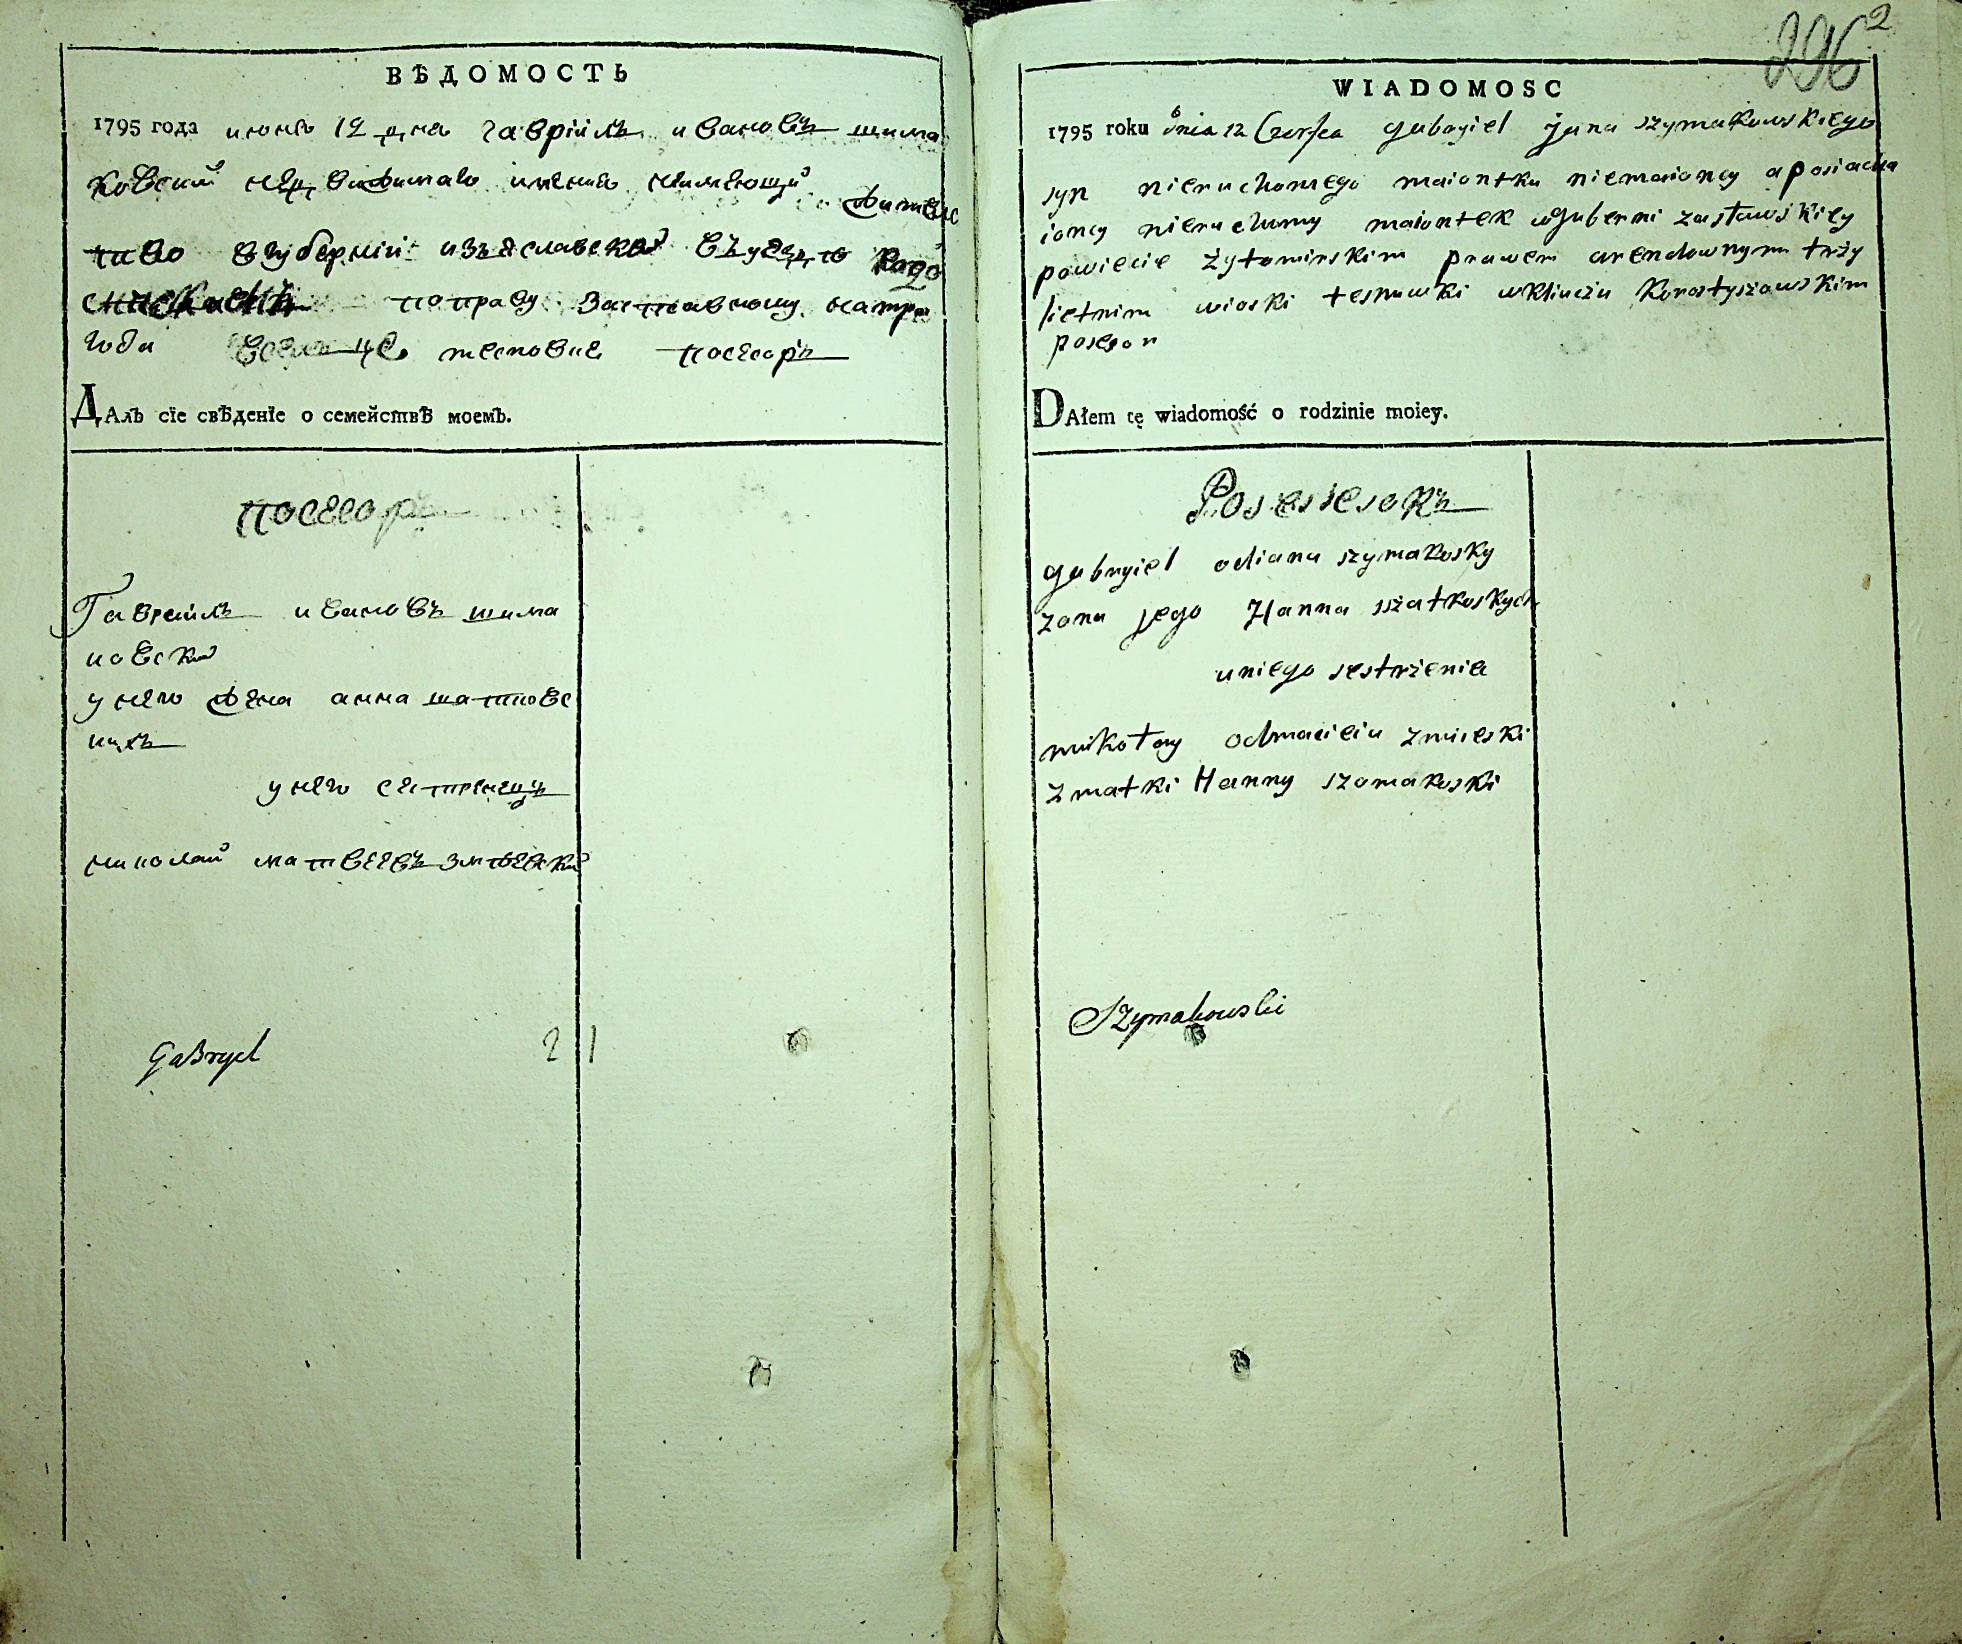 ВѢДОМОСТЬ
1795 года июня 12 дня гаврїилъ ивановъ шима
ковский недвижимаго имения неимеющий
жителс
тво вгубернїи изяславской въуезде Радо
поправу заставному натри
года тесновце посесоръ
ДАлъ сїе свѣденїе о семействѣ моемъ.
посесоръ
Гавреилъ ивановъ шима
ковский
унего жена анна шатковс
кихъ
унего сестренецъ
николай матвеевъ змѣевский
Gabryel
2 1
296 2
WIADOMOSC
1795 roku dnia 12 Czerfca gabryiel jana szymakowskiego
syn nieruchomego maiontku niemaioncy aposiada
ioncy nieruchomy maiontek wguberni zasławskiey
powiecie żytomirskim prawem arendownym trży
lietnim wioski tesnuwki wkliuczu Korostyszowskim
posesor
DAłem tę wiadomość o rodzinie moiey.
Posesiesorъ
gabryiel odiana szymakosky
zona jego Hanna szatkoskych
uniego sestrżenie
mikołay odmacieia zmieski
zmatki Hanny szomakoski
Szymakowski